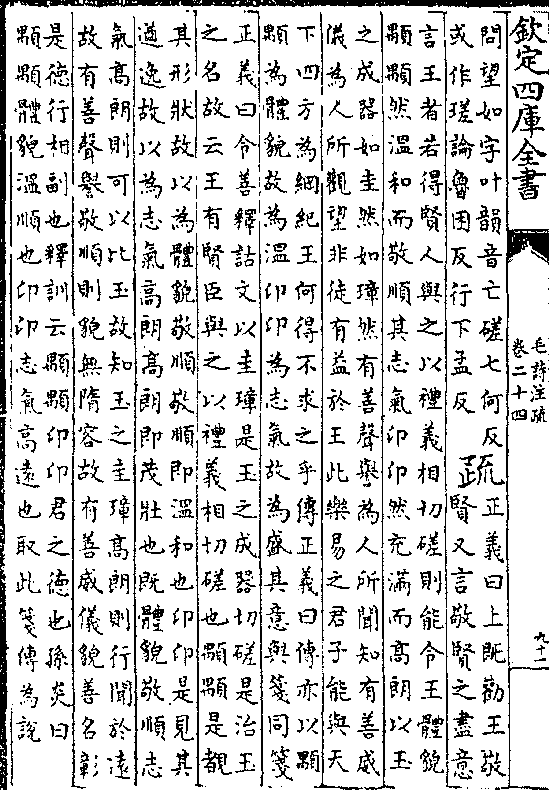 欽定四庫全書
毛詩注疏
卷二十四
九十二
問望如字叶韻音亡磋七何反
或作瑳論魯困反行下孟反
疏
正義曰上既勸王敬
賢又言敬賢之盡意
言王者若得賢人與之以禮義相切磋則能令王體貌
顒顒然溫和而敬順其志氣卬卬然充滿而高朗以玉
之成器如圭然如璋然有善聲譽為人所聞知有善威
儀為人所觀望非徒有益於王此樂易之君子能與天
下四方為綱紀王何得不求之乎傳正義曰傳亦以顒
顒為體貌故為溫卬卬為志氣故為盛其意與箋同箋
正義曰令善釋詁文以圭璋是玉之成器切磋是治玉
之名故云王有賢臣與之以禮義相切磋也顒顒是覩
其形狀故以為體貌敬順敬順即溫和也卬卬是見其
遒逸故以為志氣高朗高朗即茂壯也既體貌敬順志
氣高朗則可以比玉故知玉之圭璋高朗則行聞於遠
故有善聲譽敬順則貌無隋容故有善威儀貌善名彰
是德行相副也釋訓云顒顒卬卬君之德也孫炎曰
顒顒體貌溫順也卬卬志氣高遠也取此箋傳為說